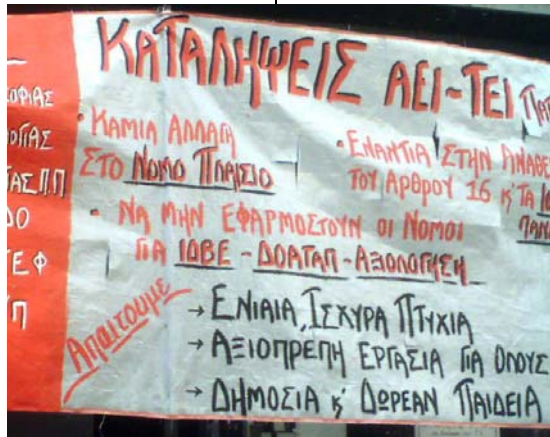 ΚΑΤΑΛΗΨΕΙΣ ΑΕΙ-ΤΕΙ ΠΑΤ
• ΚΑΜΙΑ ΑΛΛΑΓΗ
ΣΤΟ ΝΟΜΟ ΠΛΑΙΣΙΟ
• ΕΝΑΝΤΙΑ ΣΤΗΝ ΑΝΑΘΕ
ΤΟΥ ΑΡΘΡΟΥ 16 Κ' ΤΑ
ΠΑΝ
• ΝΑ ΜΗΝ ΕΦΑΡΜΟΣΤΟΥΝ ΟΙ ΝΟΜΟΙ
ΓΙΑ ΙΔΒΕ - ΔΟΑΤΑΠ - ΑΞΙΟΛΟΓΗΣΗ
Απαιτουμε
→ ΕΝΙΑΙΑ, ΙΣΧΥΡΑ ΠΤΥΧΙΑ
→ ΑΞΙΟΠΡΕΠΗ ΕΡΓΑΣΙΑ ΓΙΑ ΟΛΟΥΣ
→ ΔΗΜΟΣΙΑ Κ' ΔΩΡΕΑΝ ΠΑΙΔΕΙΑ
ΟΦΙΑΣ
ΟΓΙΑΣ
ΙΑΣ Π.Π
ΔΟ
ΤΕΦ
Π